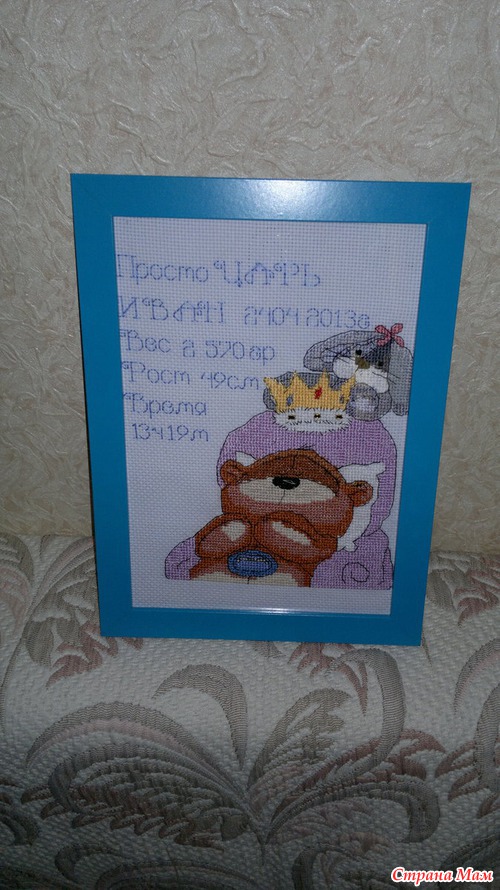 Просто ЦАРЬ
ИВАН 24042013г
Вес 2 570гр
Рост 49см
Время
13ч19м
Страна Мам